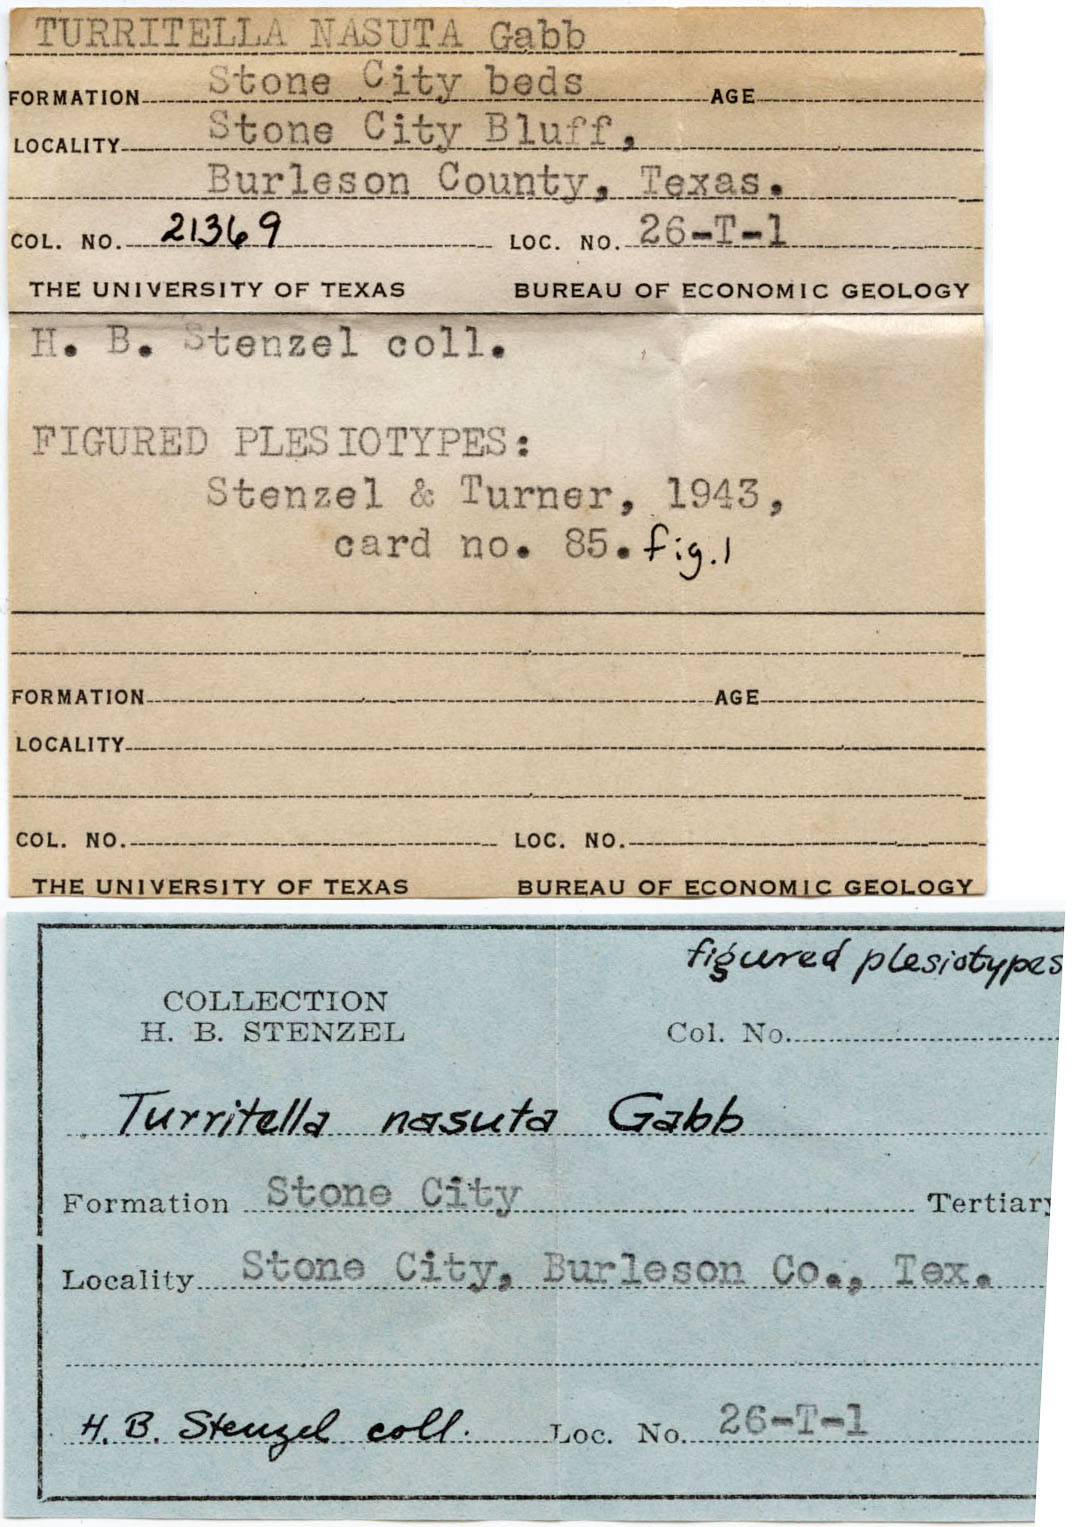 TURRITELLA NASUTA Gabb
FORMATION Stone City beds AGE
LOCALITY Stone City Bluff,
Burleson County, Texas.
COL. NO. 21369 LOC. NO. 26-T-1
THE UNIVERSITY OF TEXAS BUREAU OF ECONOMIC GEOLOGY
H. B. Stenzel coll.
FIGURED PLESIOTYPES:
Stenzel & Turner, 1943,
card no. 85. fig.1
FORMATION AGE
LOCALITY
COL. NO. LOC. NO.
THE UNIVERSITY OF TEXAS BUREAU OF ECONOMIC GEOLOGY
figured plesiotypes
COLLECTION
H. B. STENZEL Col. No.
Turritella nasuta Gabb
Formation Stone City Tertiary
Locality Stone City, Burleson Co., Tex.
H. B. Stenzel coll. Loc. No. 26-T-1